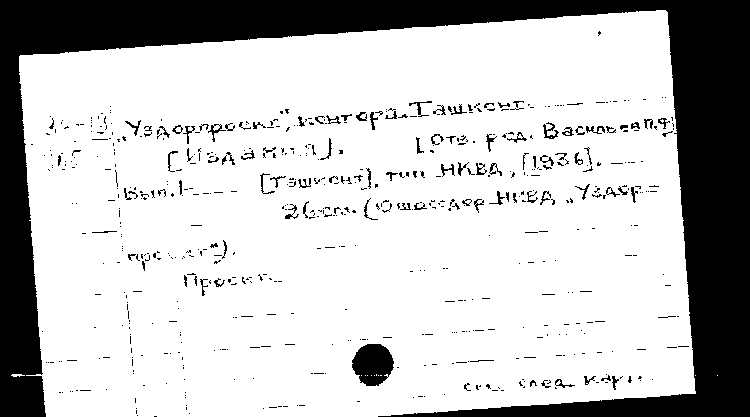 „Уздорпроект", контора. Ташкент.
[Издания]. [Отв. ред. Васильев П.Ф]
Вып. 1- [Ташкент], тип НКВД, [1936].
26 см. (Ошосдор НКВД „Уздор=
проект").
Проект.
см. след. кар.